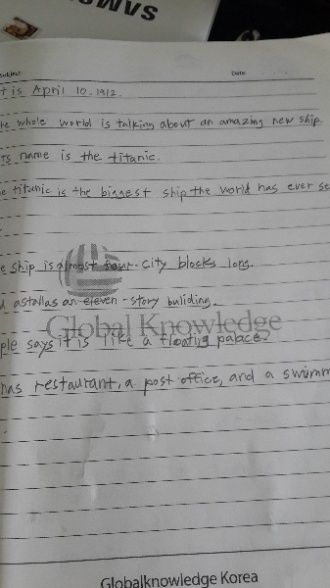 SWAN
Date
t is April 10. 1912.
he whole world is talking about an amazing new ship.
ts name is the titanic.
e titanic is the biggest ship the world has ever se
e ship is almost four-city blocks long.
d astallas an eleven-story buliding.
Global Knowledge
ple says it is like a floatig palace?
has restaurant, a post office, and a swimm
Globalknowledge Korea